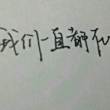 我们一直都在